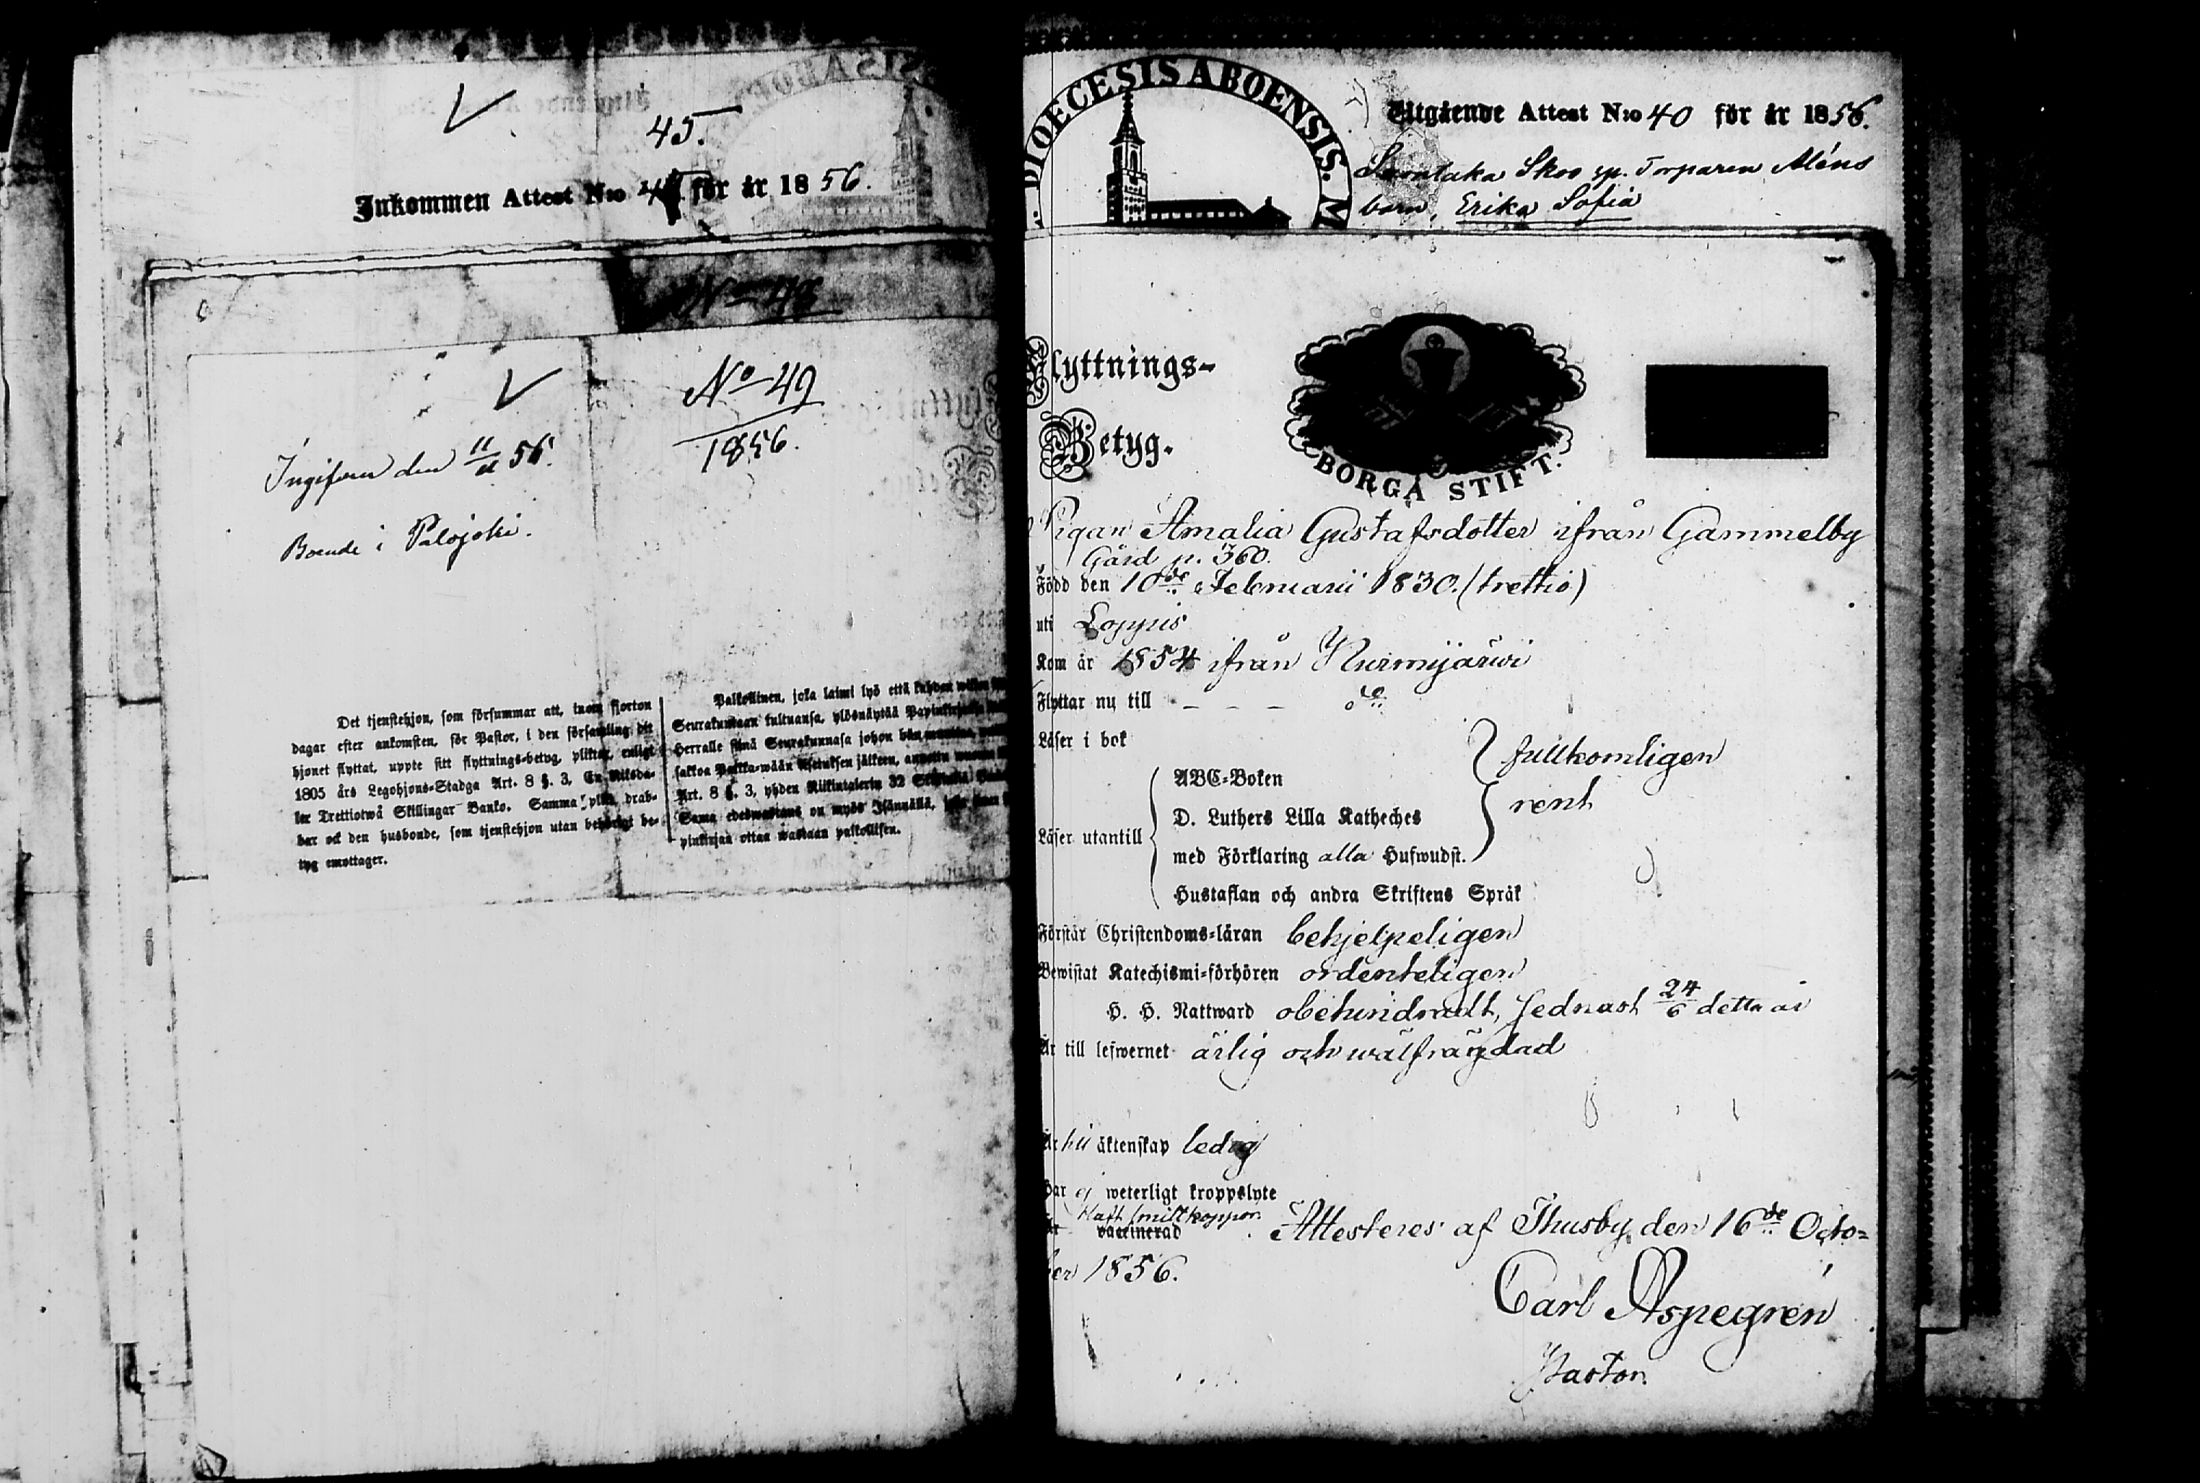 45.
Inkommen Attest N:o för år 1856.
No 49
1856.
Ingifven den 11/11 56.
Boende i Palojoki.
Det tjenstehjon, som försummar att, inom fjorton
dagar efter ankomsten, för Pastor, i den församling dit
hjonet flyttat, uppte sitt flyttnings-betyg, plikte, enligt
1805 års Legohjons-Stadga Art. 8 §. 3, En Riksda-
ler Trettiotwå Skillingar Banko. Samma plikt drab-
bar ock den husbonde, som tjenstehjon utan behörigt be-
tyg emottager.
Palkollinen, joka laimi lyö että kahden
Seurakuntaan tultuansa, ylösnäyttää
Herralle siinä Seurakunnasa johon hän
sakkoa Palkka-wään Asetuksen jälkeen,
Art. 8 §. 3, yhden Riikintalerin 32
Sama edeswastaus on myös Isännällä,
pinkirjaa ottaa wastaan palkollisen.
DIOECESIS ABOENSIS. M
Utgående Attest N:o 40 för år 1856.
Skoo sp. Torparen Aléns
barn, Erika Sofia
Flyttnings-
Betyg.
BORGÅ STIFT.
Pigan Amalia Gustafsdotter ifrån Gammelby
Gård p. 360.
Född den 10de Februarii 1830. (trettio)
uti Loppis
Kom år 1854 ifrån Nurmijärwi
Flyttar nu till - - - do
Läser i bok
fullkomligen
ABC-Boken
rent
D. Luthers Lilla Katheches
Läser utantill
med Förklaring alla Hufwudst.
Hustaflan och andra Skriftens Språk
Förstår Christendoms-läran behjelpeligen
Bewistat Katechismi-förhören ordenteligen
H. H. Nattward obehindradt, sednast 24/6 detta år
Är till lefwernet ärlig och wälfrägdad
Är till äktenskap ledig
Har ej weterligt kroppslyte
Haft smittkoppor.
Är vaccinerad
Attesteres af Thusby den 16de Octo-
ber 1856.
Carl Aspegrén
Pastor.